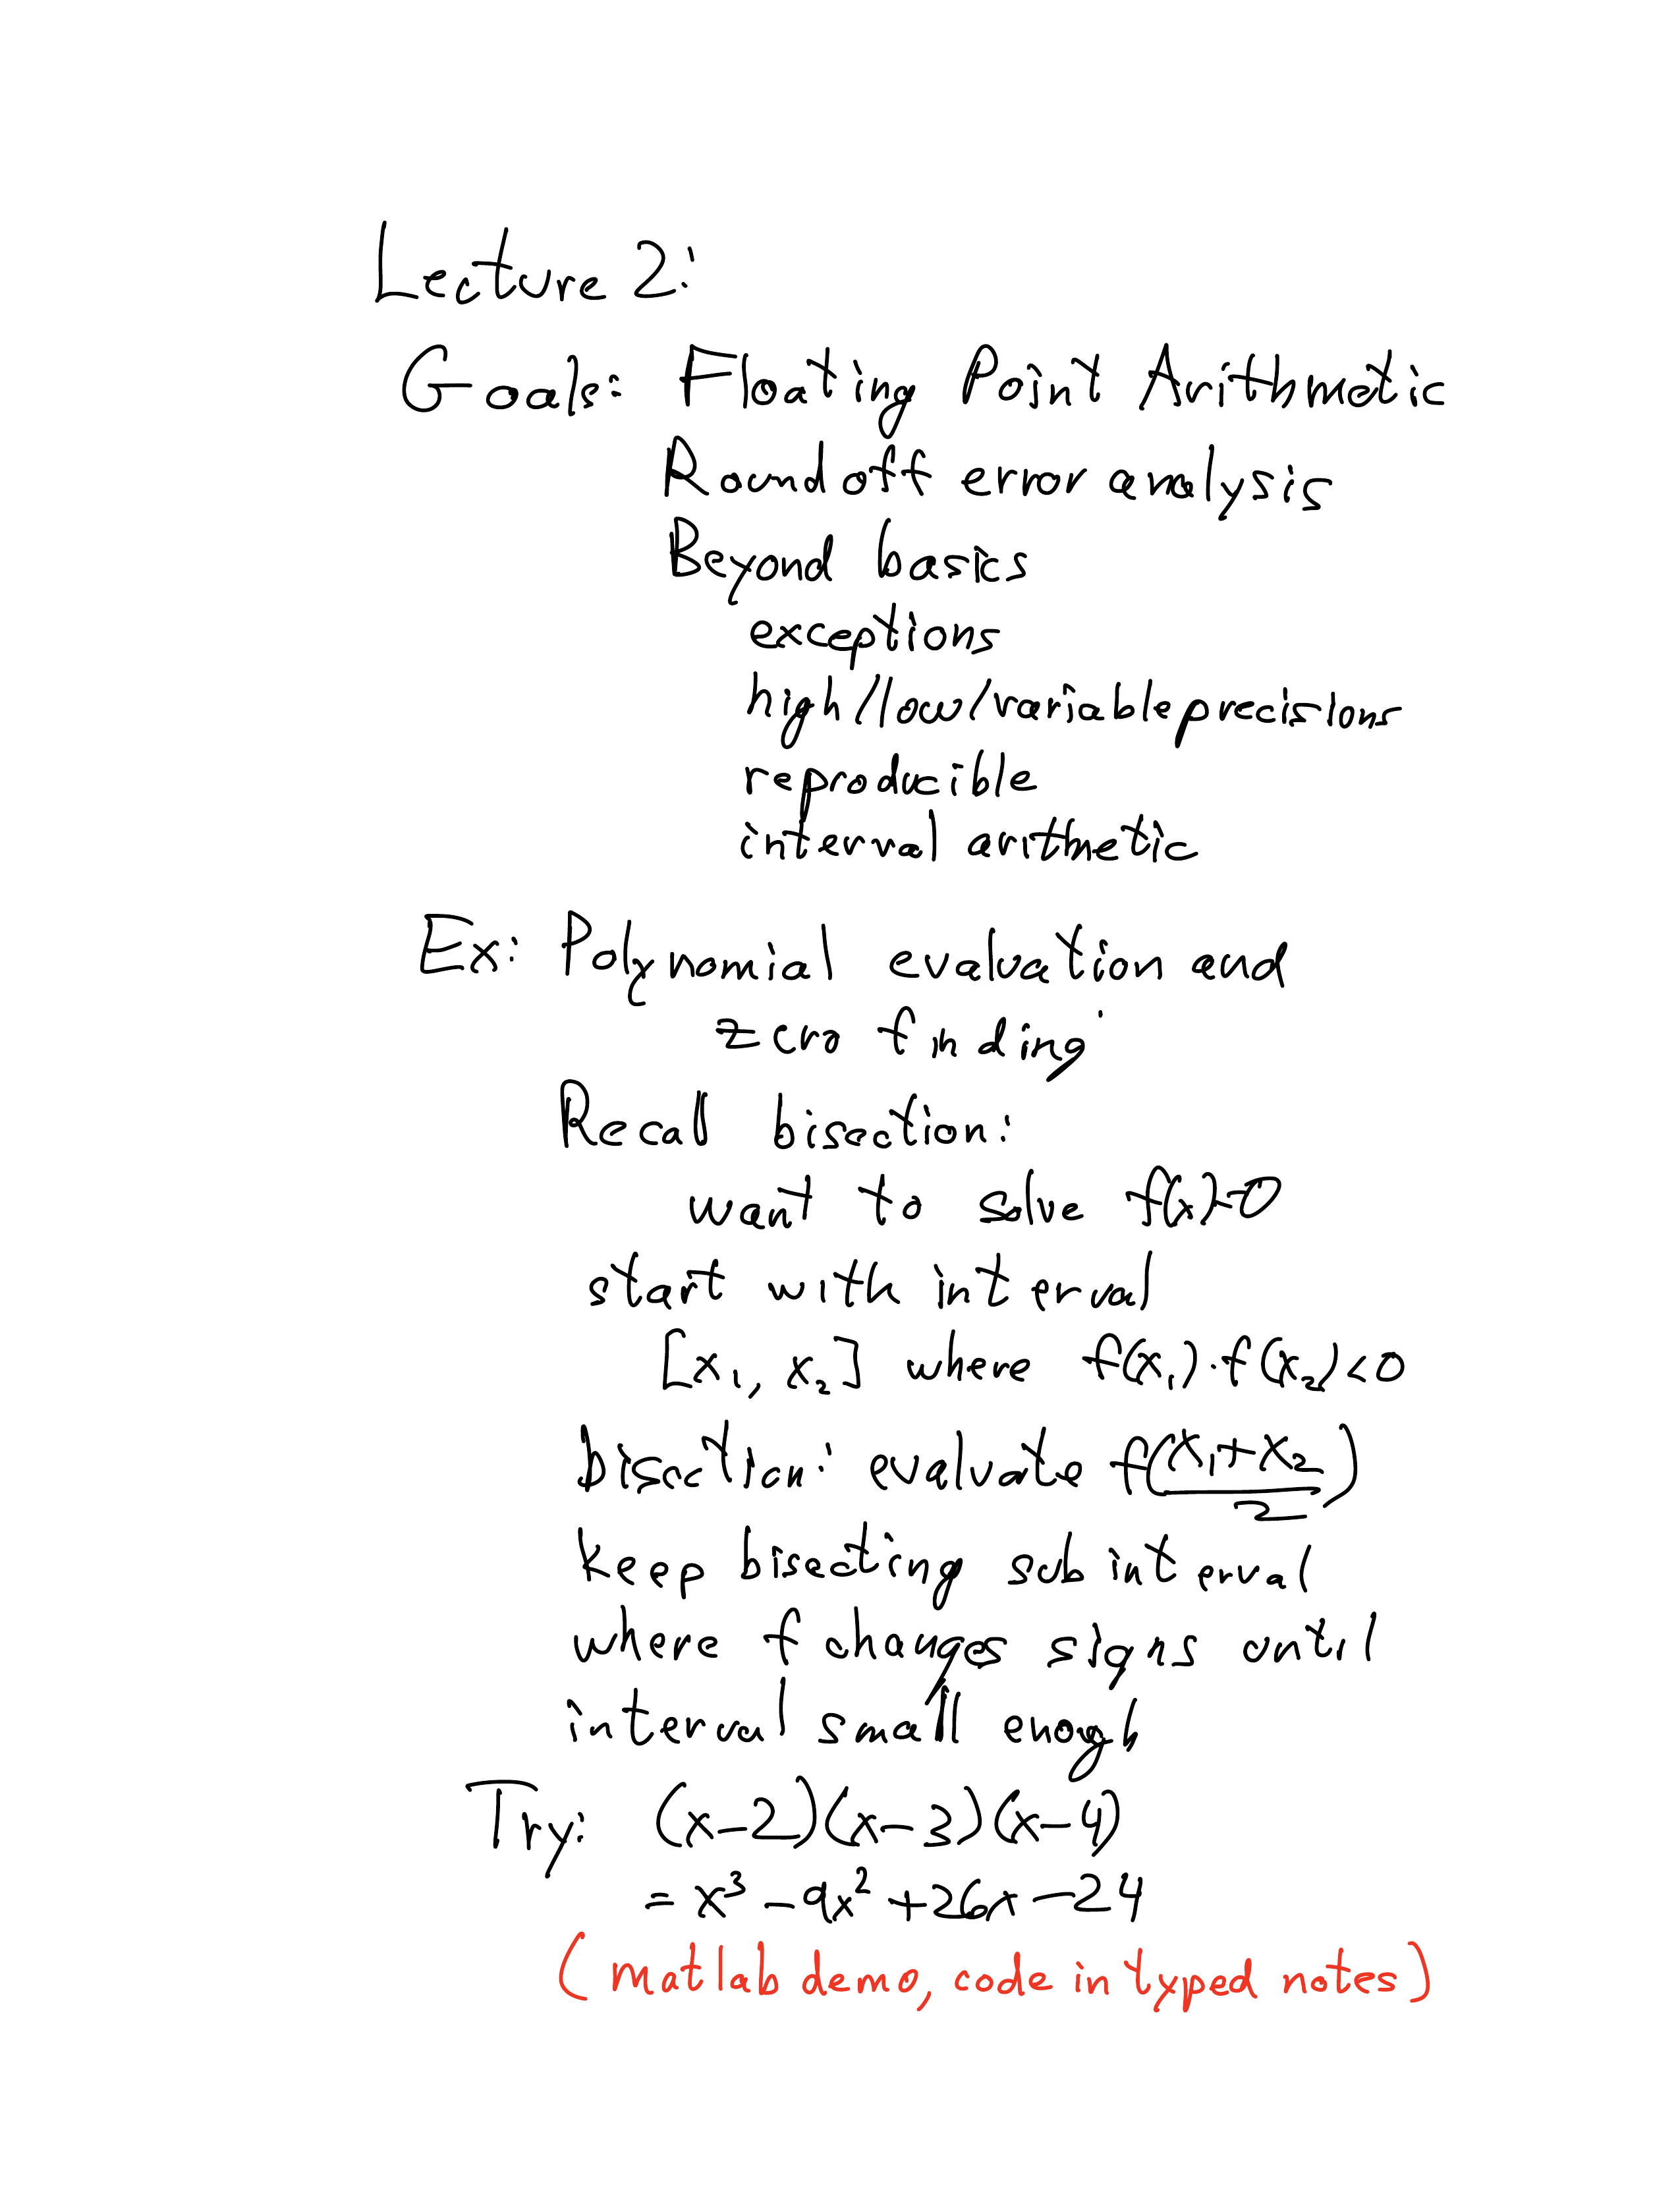 Lecture 2:
Goals: Floating Point Arithmetic
Roundoff error analysis
Beyond basics
exceptions
high/low/variable precisions
reproducible
interval arithmetic
Ex: Polynomial evaluation and
zero finding
Recall bisection:
want to solve f(x)=0
start with interval
[x₁, x₂] where f(x₁)·f(x₂)<0
bisection: evaluate f((x₁+x₂)/2)
keep bisecting subinterval
where f changes signs until
interval small enough
Try: (x-2)(x-3)(x-4)
= x³ - 9x² + 26x - 24
(matlab demo, code in typed notes)